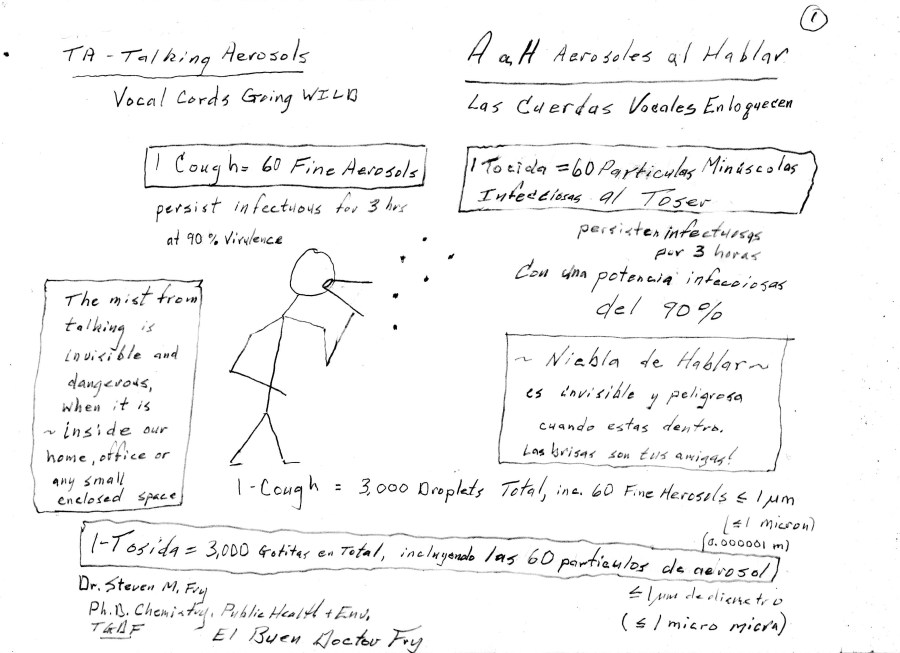 1
TA - Talking Aerosols
Vocal Cords Going WILD
1 Cough = 60 Fine Aerosols
persist infectuous for 3 hrs
at 90% Virulence
The mist from
talking is
invisible and
dangerous,
when it is
~ inside our
home, office or
any small
enclosed space
A a H Aerosoles al Hablar
Las Cuerdas Vocales Enloquecen
1 Tocida = 60 Particulas Minúscolas
Infecciosas al Toser
persisten infectuosas
por 3 horas
Con una potencia infecciosas
del 90%
~ Niebla de Hablar ~
es invisible y peligrosa
cuando estas dentro.
Las brisas son tus amigas!
1-Cough = 3,000 Droplets Total, inc. 60 Fine Aerosols ≤ 1 µm
(≤1 micron)
(0.000001 m)
1-Tosida = 3,000 Gotitas en Total, incluyendo las 60 particulos de aerosol
≤ 1 µm de diametro
(≤ 1 micro micra)
Dr. Steven M. Fry
Ph.D. Chemistry, Public Health + Env.
TGDF
El Buen Doctor Fry